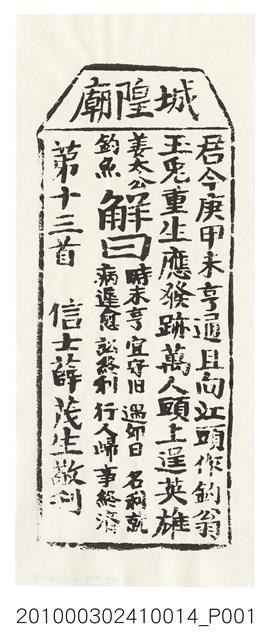 城隍廟
君今庚甲未亨通且向江頭作釣翁
玉兎重生應發跡萬人頭上逞英雄
姜太公釣魚
解曰
時未亨 宜守旧 遇卯日 名利就
病遲愈 訟終利 行人歸 事総濟
第十三首 信士薛茂生敬刊
201000302410014_P001